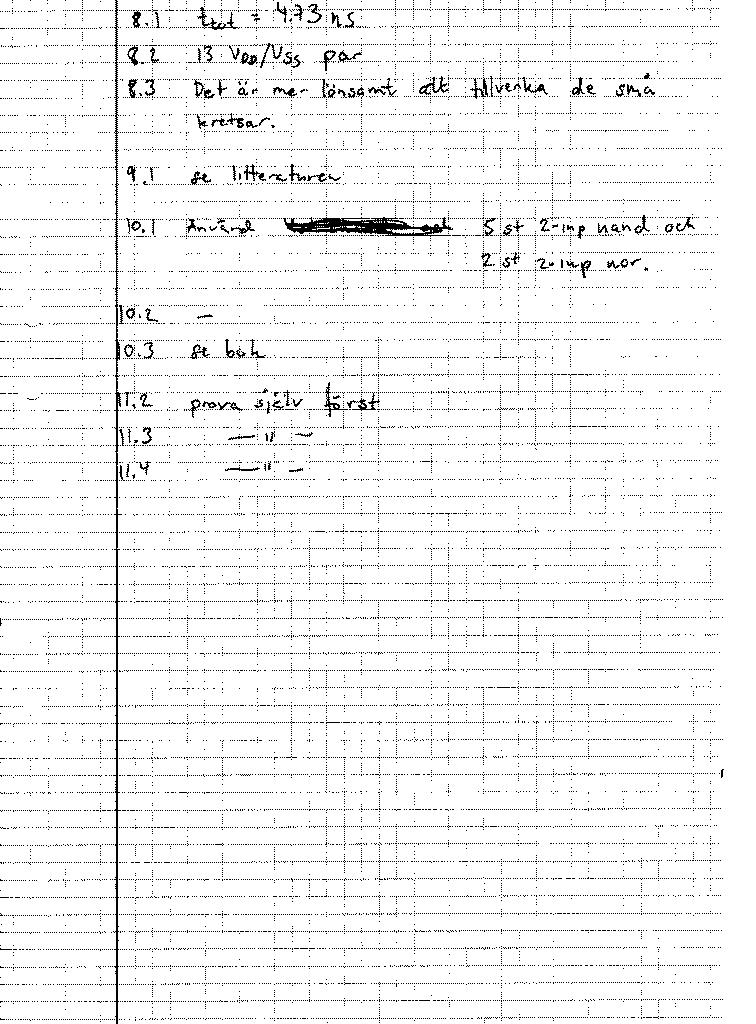 8.1 t_tot = 4.73 ns
8.2 13 V_DD/V_SS par
8.3 Det är mer lönsamt att tillverka de små
kretsar.
9.1 se litteraturen
10.1 Använd 5 st 2-inp nand och
2 st 2-inp nor.
10.2 —
10.3 se bok
11.2 prova själv först
11.3 — " —
11.4 — " —